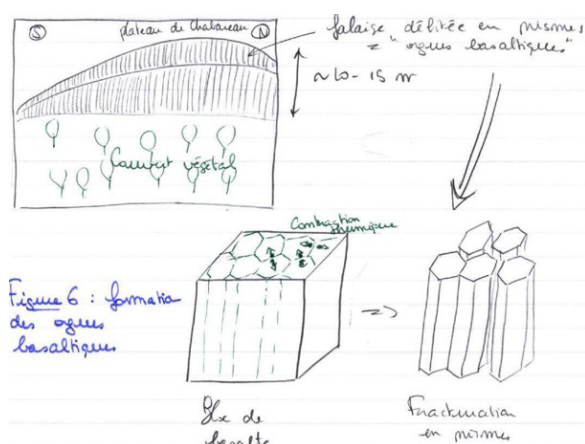 S
plateau de Chabaneau
N
falaise délitée en prismes
= "orgues basaltiques"
~ 10-15 m
Couvert végétal
Contraction
thermique
Figure 6 : formation
des orgues
basaltiques
=>
Bloc de
basalte
Fracturation
en prismes